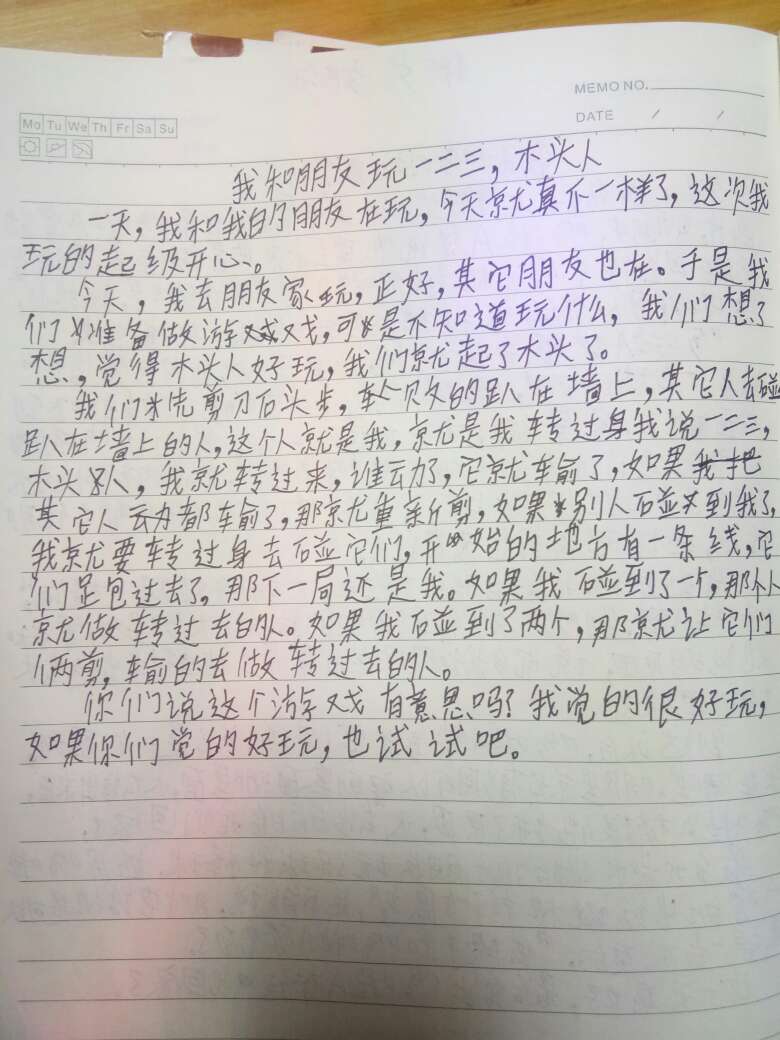 MEMO NO.
DATE / /
Mo Tu We Th Fr Sa Su
我和朋友玩一二三，木头人
一天，我和我的朋友在玩，今天就真不一样了，这次我
玩的起级开心。
今天，我去朋友家玩，正好，其它朋友也在。于是我
们准备做游戏戏，可是不知道玩什么，我们想了
想，觉得木头人好玩，我们就起了木头了。
我们先剪刀石头步，输败的趴在墙上，其它人去碰
趴在墙上的人，这个人就是我，就是我转过身我说一二三，
木头人，我就转过来，谁动了，它就输了，如果我把
其它人动都输了，那就重新剪，如果别人碰到我了，
我就要转过身去碰它们，开始的地方有一条线，它
们跑过去了，那下一局还是我。如果我碰到了一个，那个人
就做转过去的人。如果我碰到了两个，那就让它们
俩剪，输的去做转过去的人。
你们说这个游戏有意思吗？我觉的很好玩，
如果你们觉的好玩，也试试吧。